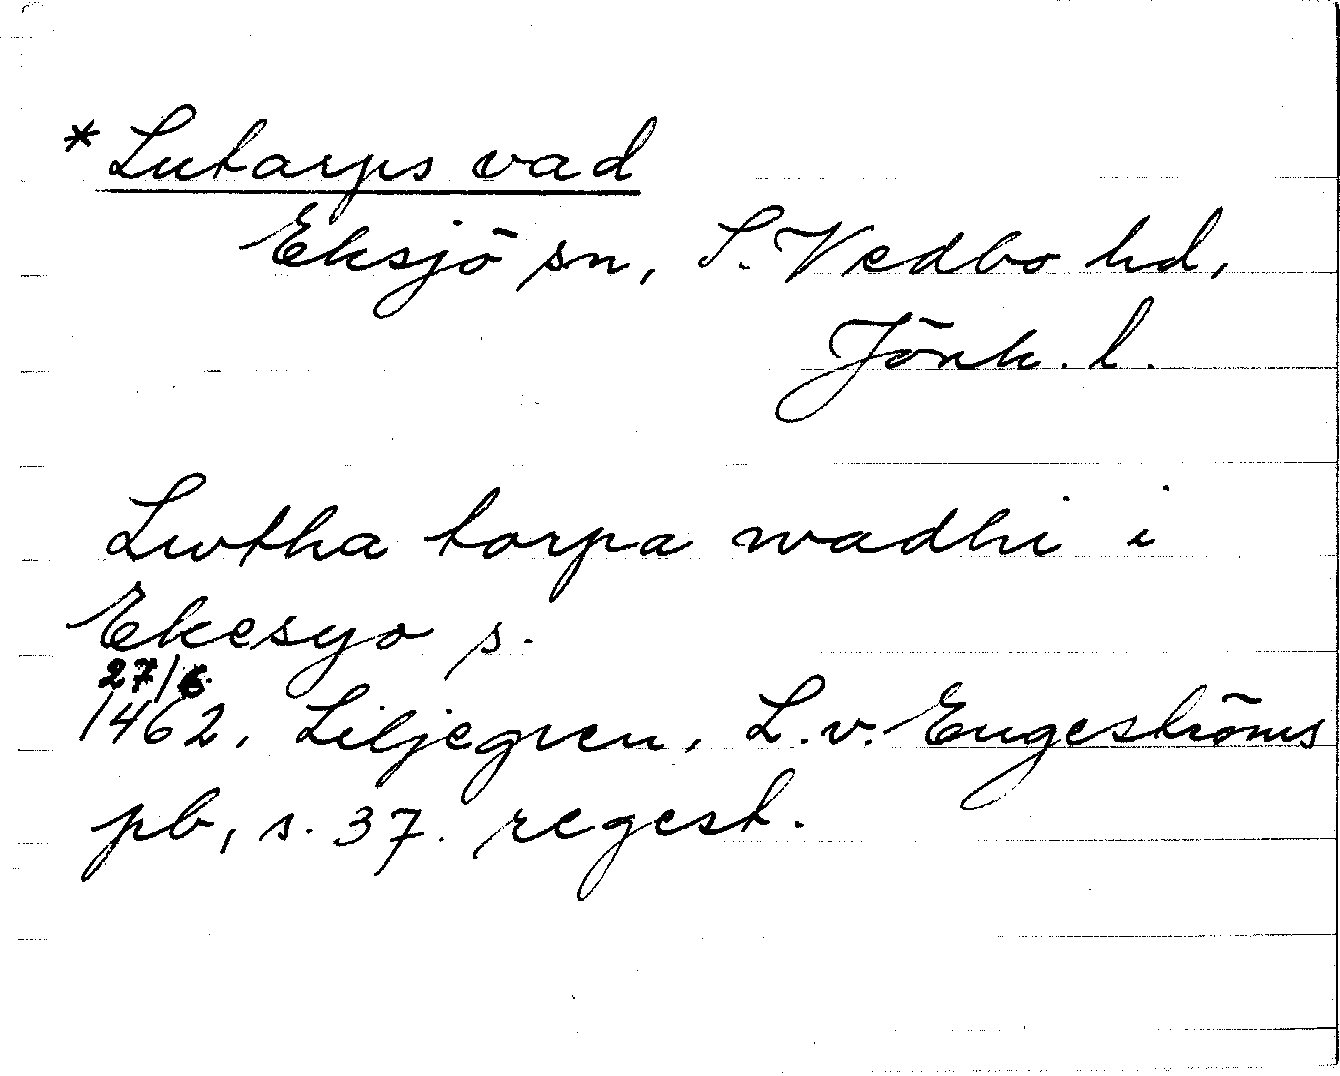 * Lutarps vad
Eksjö sn, S. Vedbo hd,
Jönk. l.
Lwtha torpa wadhi i
Ekesyo s.
27/6
1462. Liljegren, L. v. Engeströms
pb, s. 37. regest.